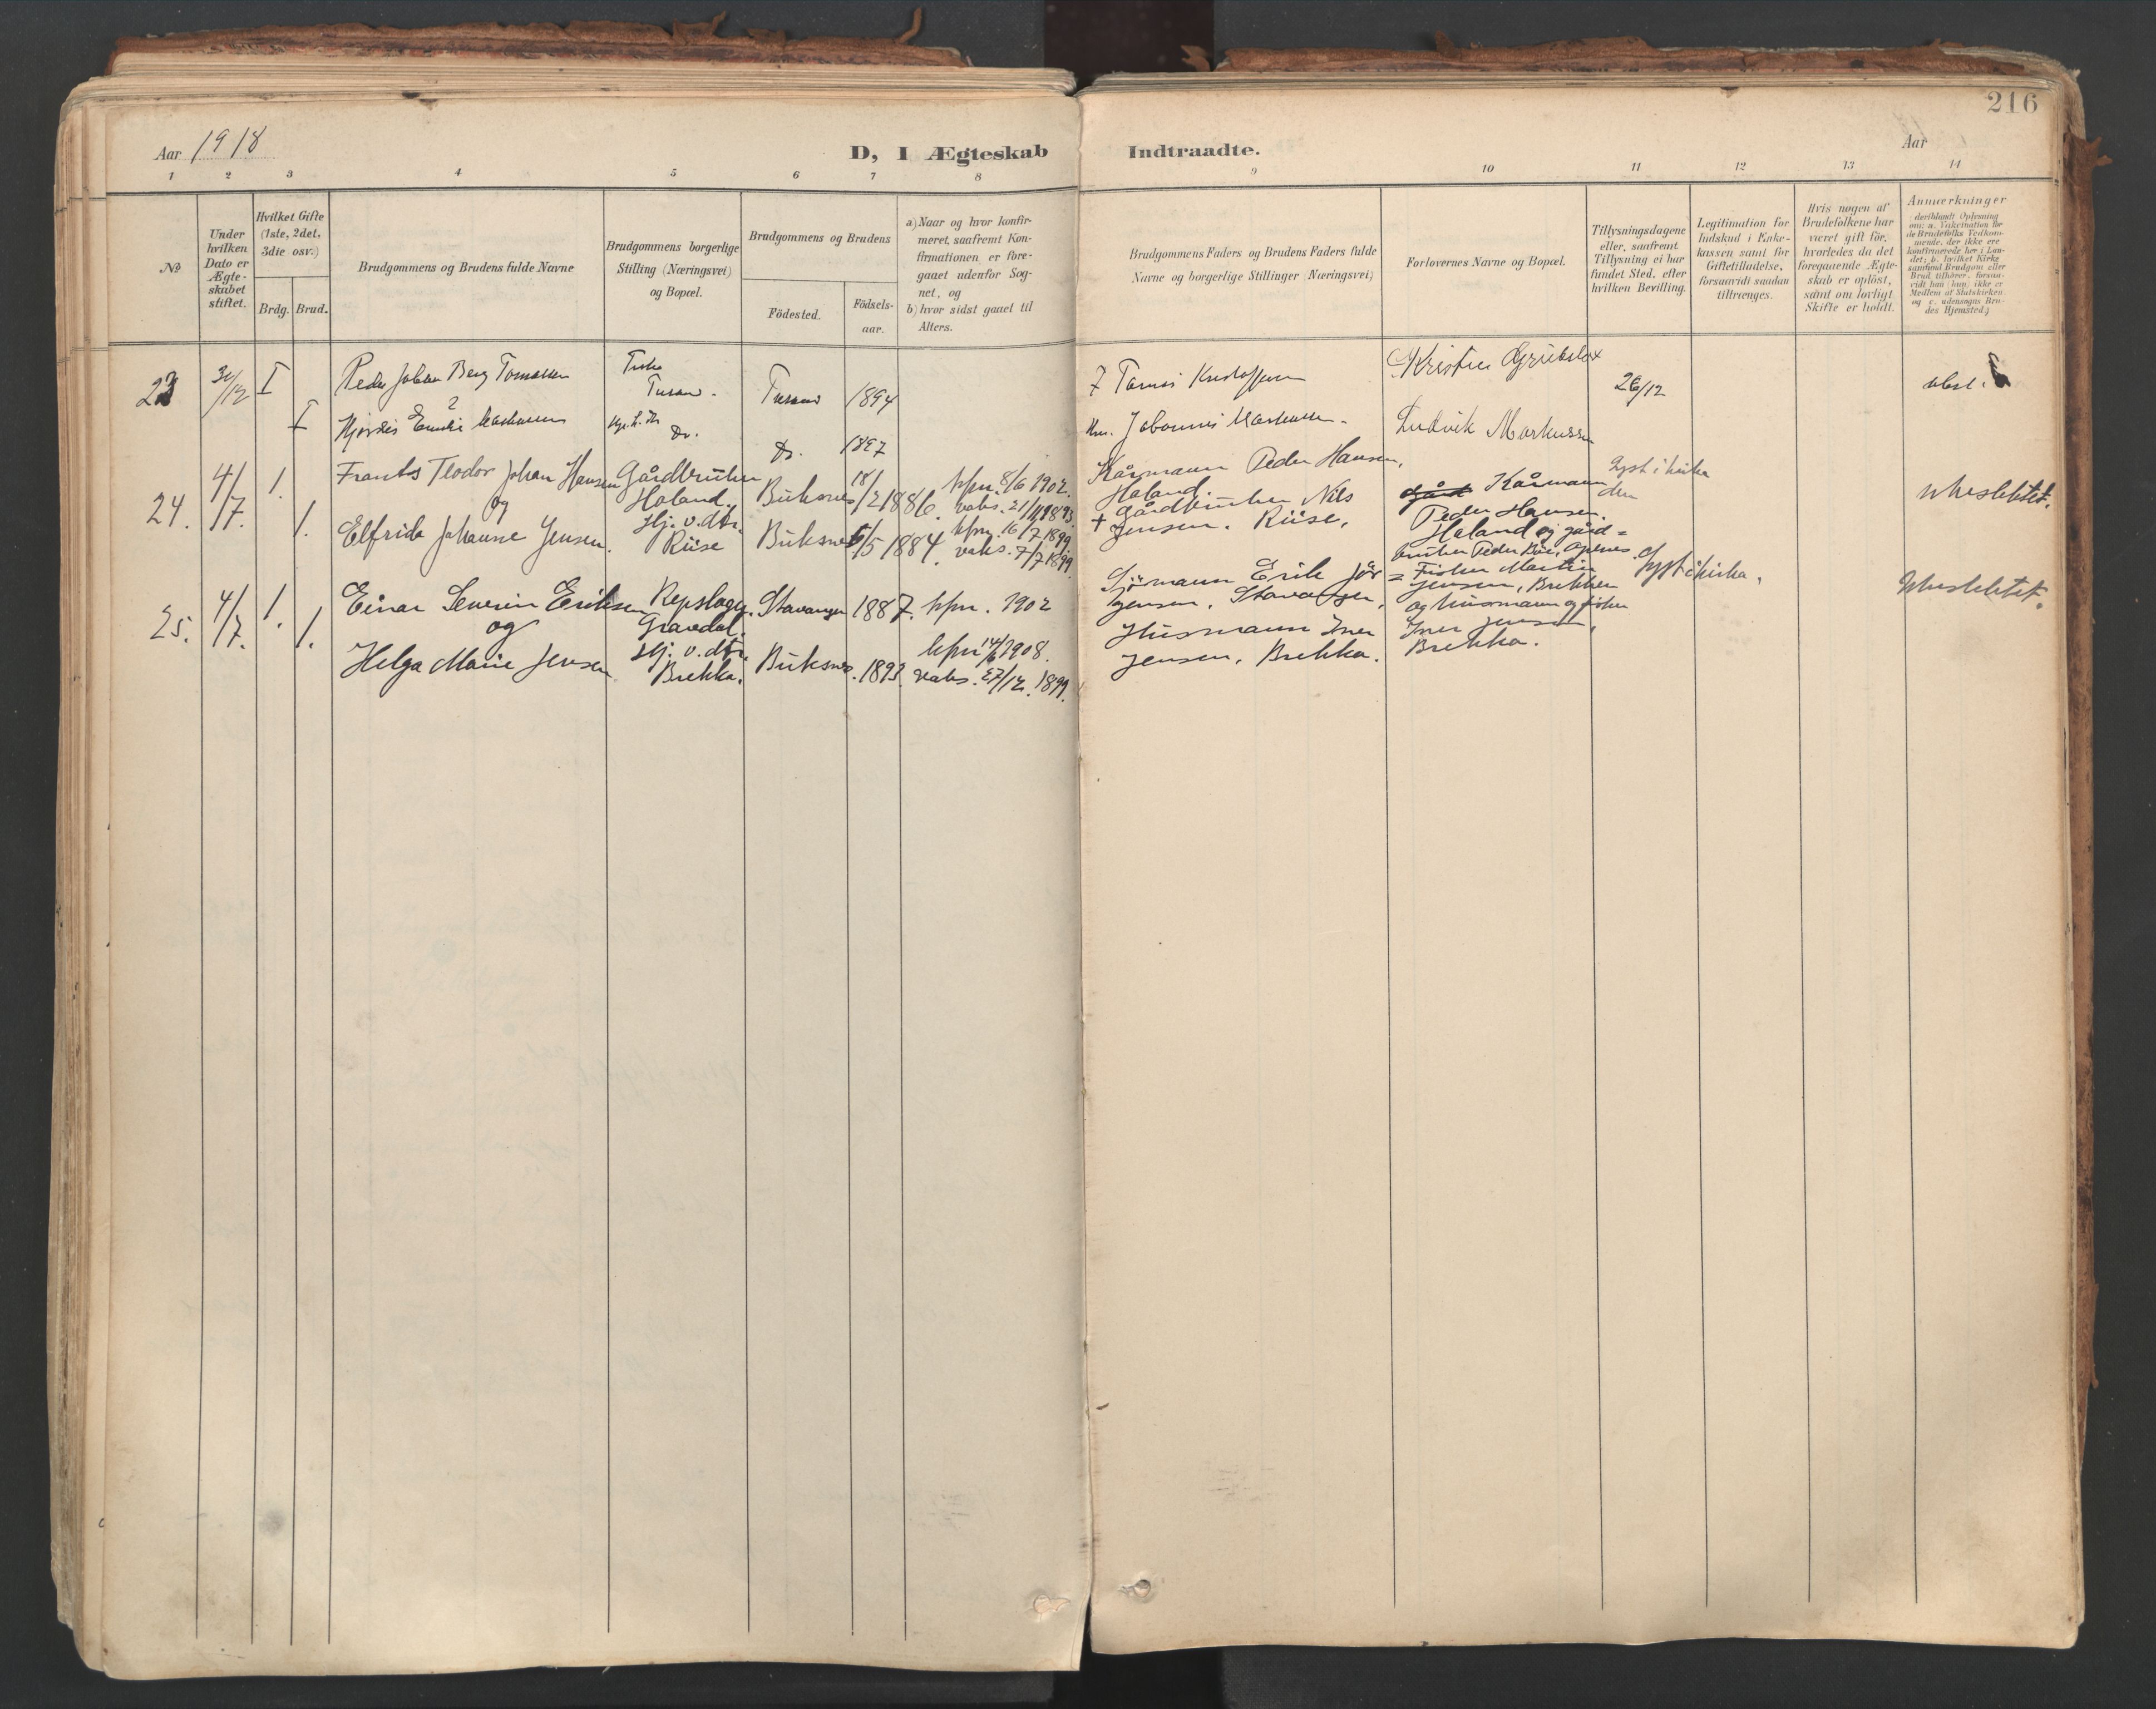 216
Aar 1918
D, I Ægteskab Indtraadte.
Aar
1 2 3 4 5 6 7 8 9 10 11 12 13 14
No
Under hvilken Dato er Ægte-skabet stiftet.
Hvilket Gifte (1ste, 2det, 3die osv.)
Brdg. Brud.
Brudgommens og Brudens fulde Navne
Brudgommens borgerlige Stilling (Næringsvei) og Bopæl.
Brudgommens og Brudens
Födested.
Födsels-aar.
a) Naar og hvor konfir-
meret, saafremt Kon-
firmationen er fore-
gaaet udenfor Sog-
net, og
b) hvor sidst gaaet til
Alters.
Brudgommens Faders og Brudens Faders fulde
Navne og borgerlige Stillinger (Næringsvei)
Forlovernes Navne og Bopæl.
Tillysningsdagene
eller, saafremt
Tillysning ei har
fundet Sted, efter
hvilken Bevilling.
Legitimation for
Indskud i Enke-
kassen samt for
Giftetilladelse,
forsaavidt saadan
tiltrænges.
Hvis nogen af
Brudefolkene har
været gift för,
hvorledes da det
foregaaende Ægte-
skab er oplöst,
samt om lovligt
Skifte er holdt.
Anmærkninger
(deriblandt Oplysning
om: a. Vakcination for
de Brudefolks Vedkom-
mende, der ikke ere
konfirmerede her i Lan-
det; b. hvilket Kirke-
samfund Brudgom eller
Brud tilhører, forsaa-
vidt han (hun) ikke er
Medlem af Statskirken,
og c. udensogns Bru-
des Hjemsted.)
23 /12 I Peder Johan Berg Tomassen 1894 Kristoffersen Kristen 26/12 ubsl.
I Hjørdis Markussen Do. Do. 1897 Johannes Markussen Ludvik Markussen
24. 4/7. 1. Frants Teodor Johan Hansen Gårdbruker Holand. Buksnes 18/2 1886. kfm. 8/6 1902. vaks. 21/11 1893. Kårmann Peder Hansen, Holand. Kårmann Peder Hansen, Lyst i kirken ubeslektet.
og
1. Elfrida Johanne Jensen. Hj. v. dtr. Riise Buksnes 5/5 1884. kfm. 16/7 1899 vaks. 7/7 1899. + Gårdbruker Nils Jensen. Riise. Holand og gård=bruker Peder
25. 4/7. 1. Einar Severin Eriksen Repslager. Gravdal. Stavanger 1887. kfm. 1902 Sjømann Erik Jör=gensen, Stavanger, Fisker Martin Jensen, Brekken Lyst i kirka. Ubeslektet.
og
1. Helga Marie Jensen Hj. v. dtr. Brekka. Buksnes. 1893. kfm 1908. vaks. 27/12. 1899. Husmann Iver Jensen, Brekka. og husmann og fisker Iver Jensen, Brekka.